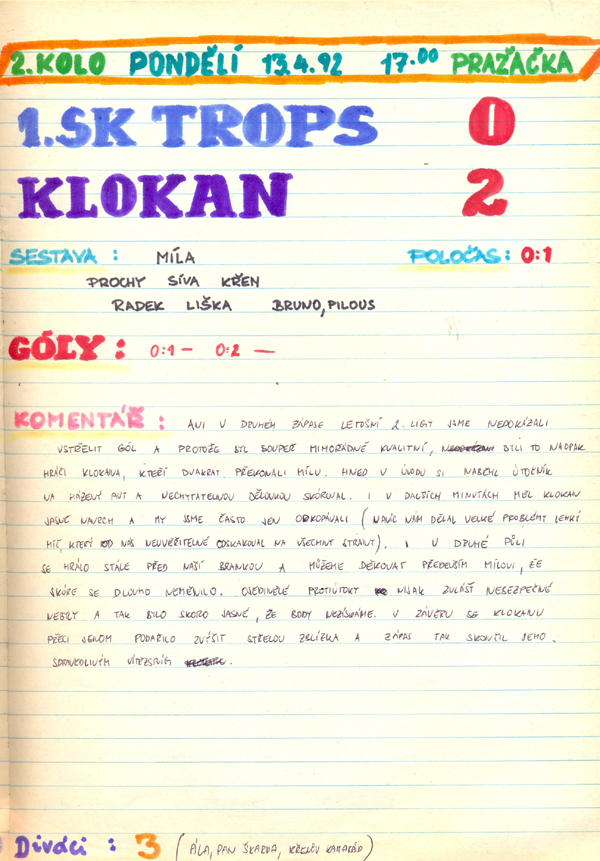 2. KOLO PONDĚLÍ 13.4.92 17.00 PRAŽAČKA
1.SK TROPS 0
KLOKAN 2
SESTAVA : MÍLA POLOČAS: 0:1
PROCHY SÍVA KŘEN
RADEK LIŠKA BRUNO, PILOUS
GÓLY : 0:1 — 0:2 —
KOMENTÁŘ : ANI V DRUHÉM ZÁPASE LETOŠNÍ 2. LIGY JSME NEDOKÁZALI
VSTŘELIT GÓL A PROTOŽE BYL SOUPEŘ MIMOŘÁDNĚ KVALITNÍ, BYLI TO NAOPAK
HRÁČI KLOKANA, KTEŘÍ DVAKRÁT PŘEKONALI MÍLU. HNED V ÚVODU SI NABĚHL ÚTOČNÍK
NA HÁZENÝ AUT A NECHYTATELNOU DĚLOVKOU SKÓROVAL. I V DALŠÍCH MINUTÁCH MĚL KLOKAN
JASNĚ NAVRCH A MY JSME ČASTO JEN ODKOPÁVALI (NAVÍC NÁM DĚLAL VELKÉ PROBLÉMY LEHKÝ
MÍČ, KTERÝ OD NÁS NEUVĚŘITELNĚ ODSKAKOVAL NA VŠECHNY STRANY). I V DRUHÉ PŮLI
SE HRÁLO STÁLE PŘED NAŠÍ BRANKOU A MŮŽEME DĚKOVAT PŘEDEVŠÍM MÍLOVI, ŽE
SKÓRE SE DLOUHO NEMĚNILO. OJEDINĚLÉ PROTIÚTOKY NIJAK ZVLÁŠŤ NEBEZPEČNÉ
NEBYLY A TAK BYLO SKORO JASNÉ, ŽE BODY NEZÍSKÁME. V ZÁVĚRU SE KLOKANU
PŘECI JENOM PODAŘILO ZVÝŠIT STŘELOU ZBLÍZKA A ZÁPAS TAK SKONČIL JEHO
SPRAVEDLIVÝM VÍTĚZSTVÍM .
Diváci : 3 (ÁLA, PAN ŠKARDA, KŘENŮV KAMARÁD)